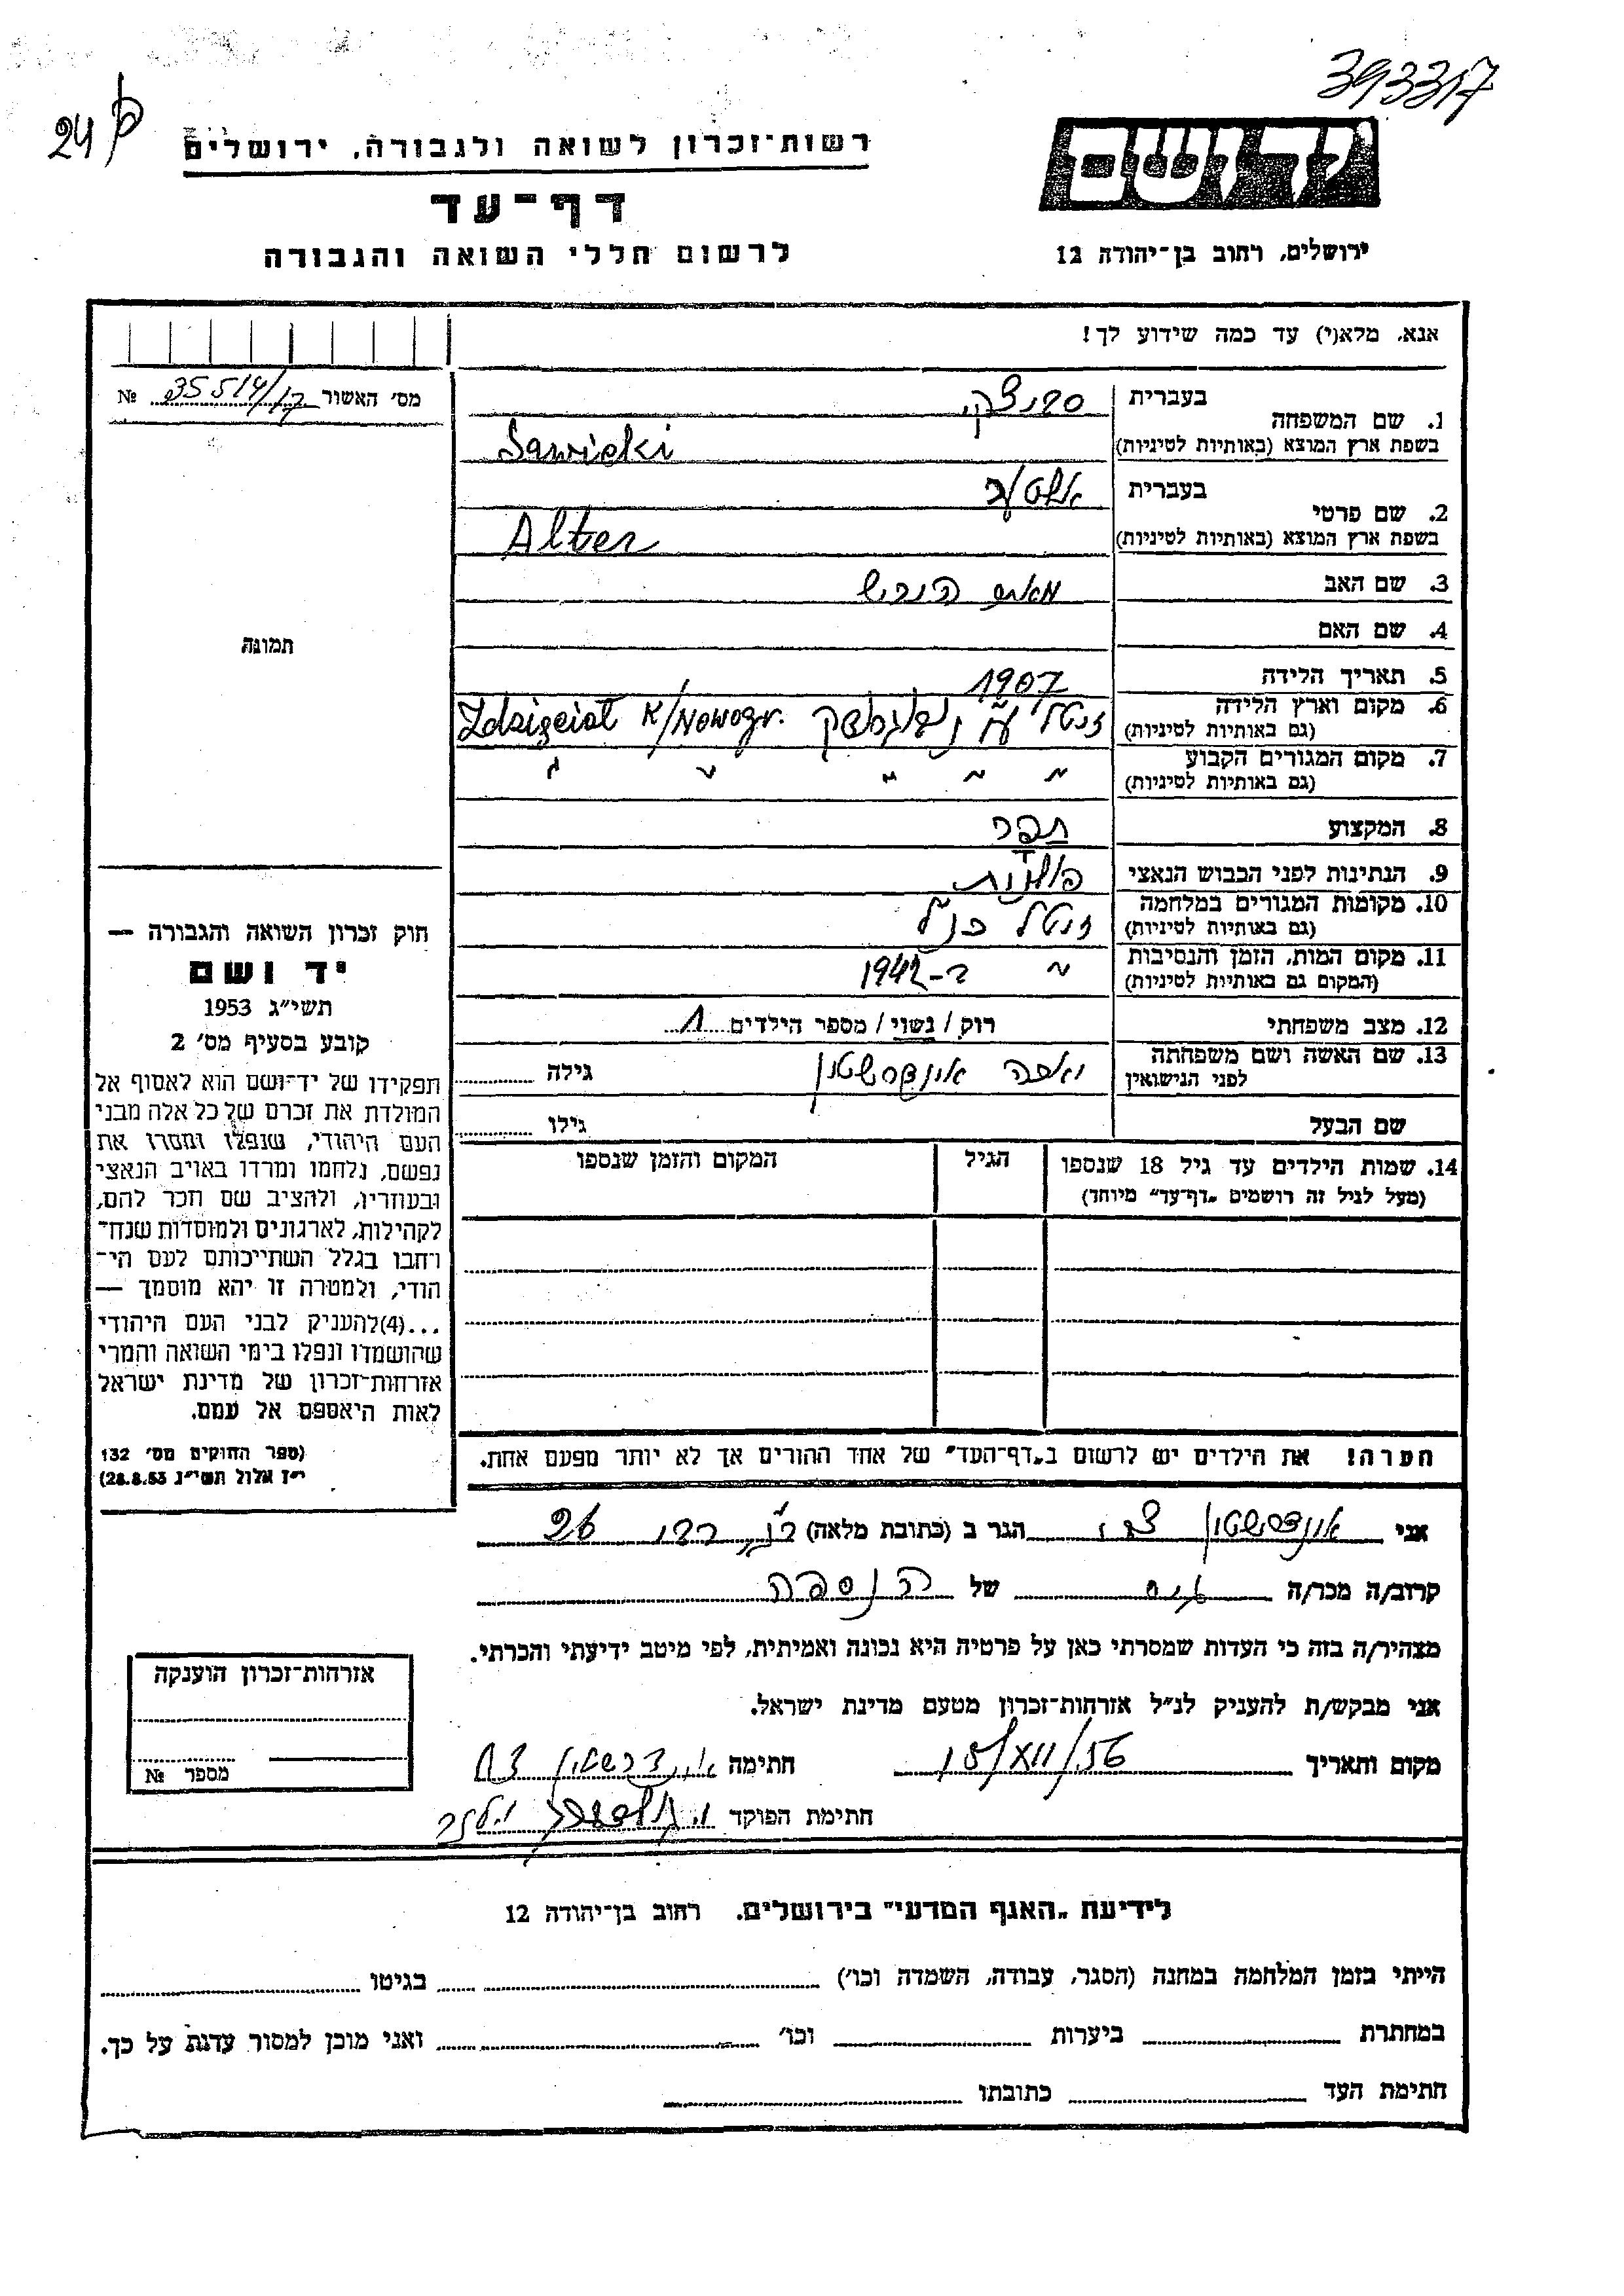 393317
24 ק
רשות־זכרון לשואה ולגבורה, ירושלים
יד ושם
דף־עד
לרשום חללי השואה והגבורה
ירושלים, רחוב בן־יהודה 12
אנא, מלא(י) עד כמה שידוע לך!
מס' האשור № 35514/17
תמונה
1. שם המשפחה בעברית סביצקי
בשפת ארץ המוצא (באותיות לטיניות) Sawicki
2. שם פרטי בעברית אלטער
בשפת ארץ המוצא (באותיות לטיניות) Alter
3. שם האב הירש
4. שם האם
5. תאריך הלידה 1907
6. מקום וארץ הלידה (גם באותיות לטיניות) זטל ע"י Zdzięciol K/Nowogr.
7. מקום המגורים הקבוע (גם באותיות לטיניות) " " " " "
8. המקצוע תפר
9. הנתינות לפני הכבוש הנאצי פולנית
10. מקומות המגורים במלחמה (גם באותיות לטיניות) זטל כנ"ל
11. מקום המות, הזמן והנסיבות (המקום גם באותיות לטיניות) " ב-1942
12. מצב משפחתי רוק / נשוי / מספר הילדים 1
13. שם האשה ושם משפחתה לפני הנישואין גילה
שם הבעל גילו
14. שמות הילדים עד גיל 18 שנספו (מעל לגיל זה רושמים „דף־עד" מיוחד) הגיל המקום והזמן שנספו
הערה! את הילדים יש לרשום ב„דף־העד" של אחד ההורים אך לא יותר מפעם אחת.
חוק זכרון השואה והגבורה —
יד ושם
תשי"ג 1953
קובע בסעיף מס' 2
תפקידו של יד־ושם הוא לאסוף אל
המולדת את זכרם של כל אלה מבני
העם היהודי, שנפלו ומסרו את
נפשם, נלחמו ומרדו באויב הנאצי
ובעוזריו, ולהציב שם וזכר להם,
לקהילות, לארגונים ולמוסדות שנח־
רבו בגלל השתייכותם לעם הי־
הודי, ולמטרה זו יהא מוסמך —
...(4)להעניק לבני העם היהודי
שהושמדו ונפלו בימי השואה והמרי
אזרחות־זכרון של מדינת ישראל
לאות היאספם אל עמם.
(ספר החוקים מס' 132
י"ז אלול תשי"ג 28.8.53)
אני צבי הגר ב (כתובת מלאה) 26
קרוב/ה מכר/ה גיס של הנספה
מצהיר/ה בזה כי העדות שמסרתי כאן על פרטיה היא נכונה ואמיתית, לפי מיטב ידיעתי והכרתי.
אני מבקש/ת להעניק לנ"ל אזרחות־זכרון מטעם מדינת ישראל.
מקום ותאריך 15/XII/56 חתימה
חתימת הפוקד
אזרחות־זכרון הוענקה
מספר №
לידיעת „האגף המדעי" בירושלים, רחוב בן־יהודה 12
הייתי בזמן המלחמה במחנה (הסגר, עבודה, השמדה וכו') בגיטו
במחתרת ביערות וכו' ואני מוכן למסור עדות על כך.
חתימת העד כתובתו